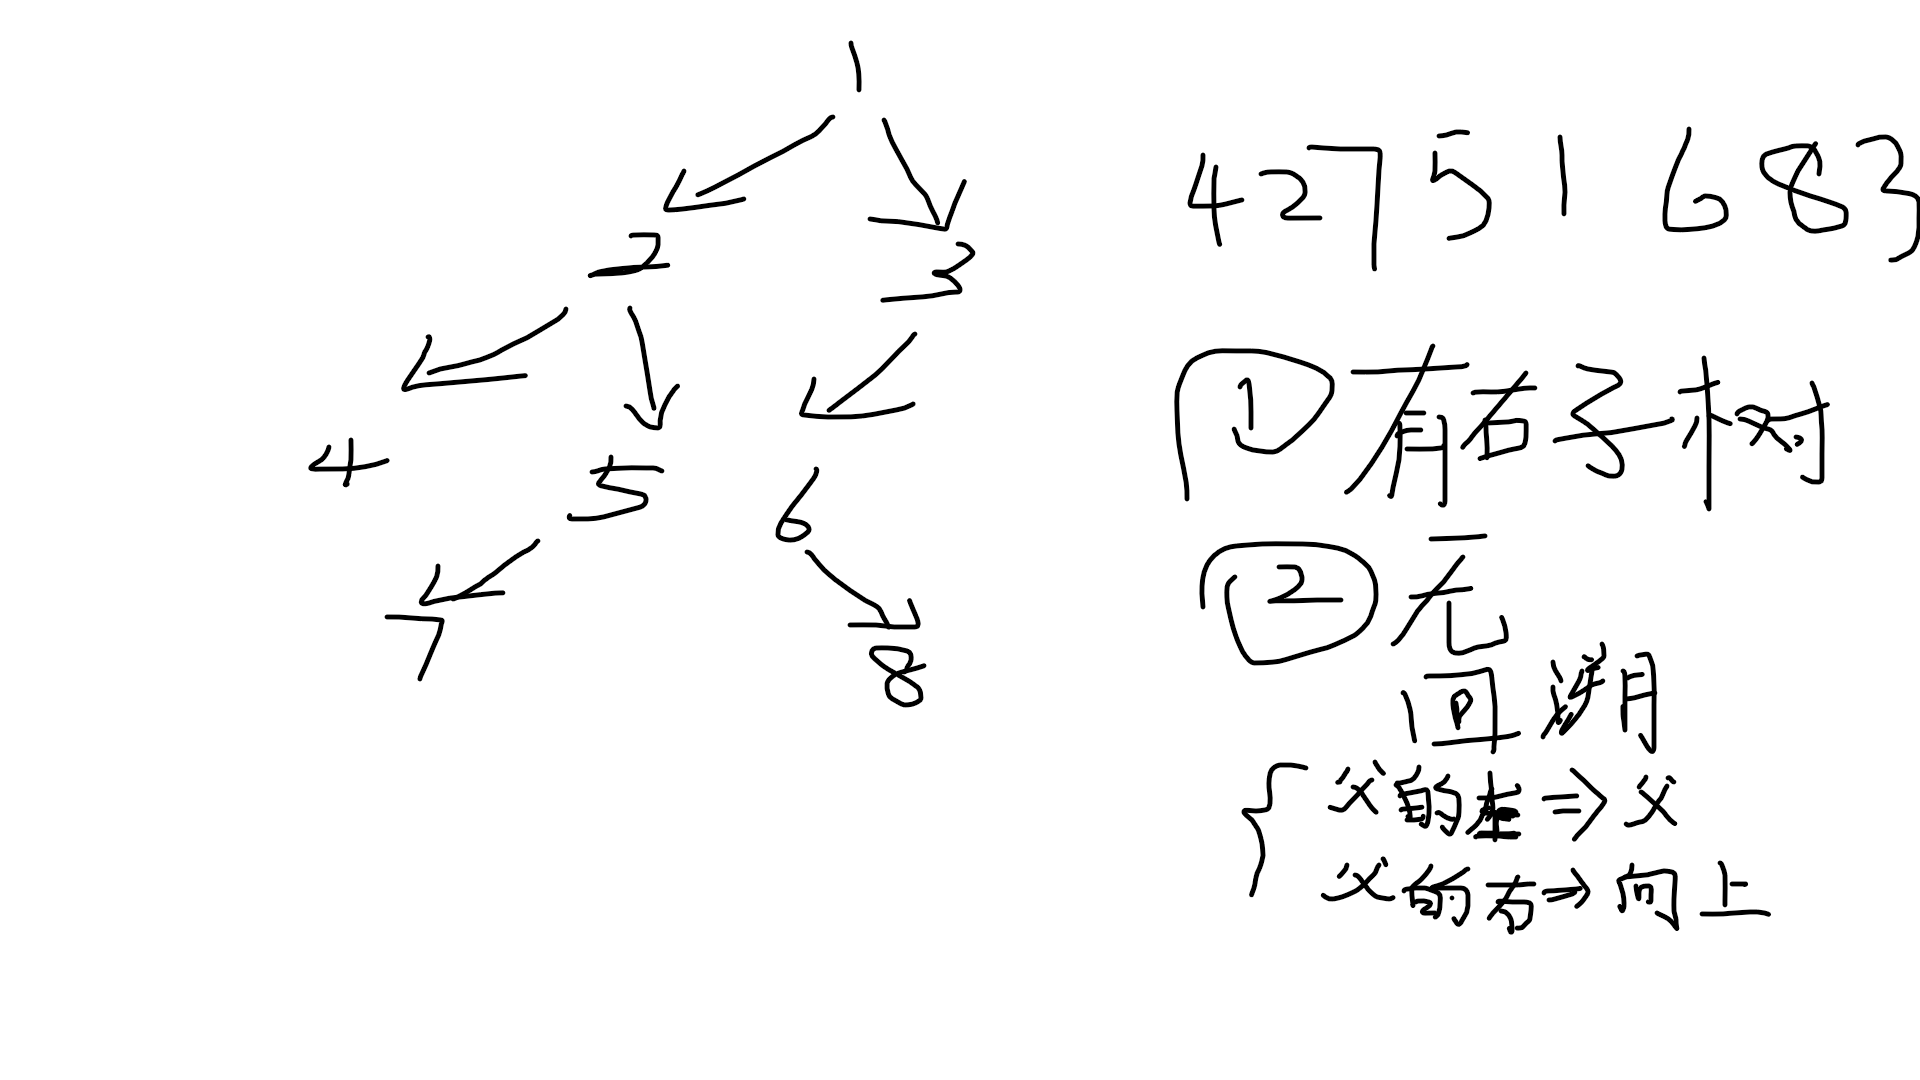 1
2 3
4 5 6
7 8
4 2 7 5 1 6 8 3
① 有右子树
② 无
回溯
父的左 => 父
父的右 => 向上